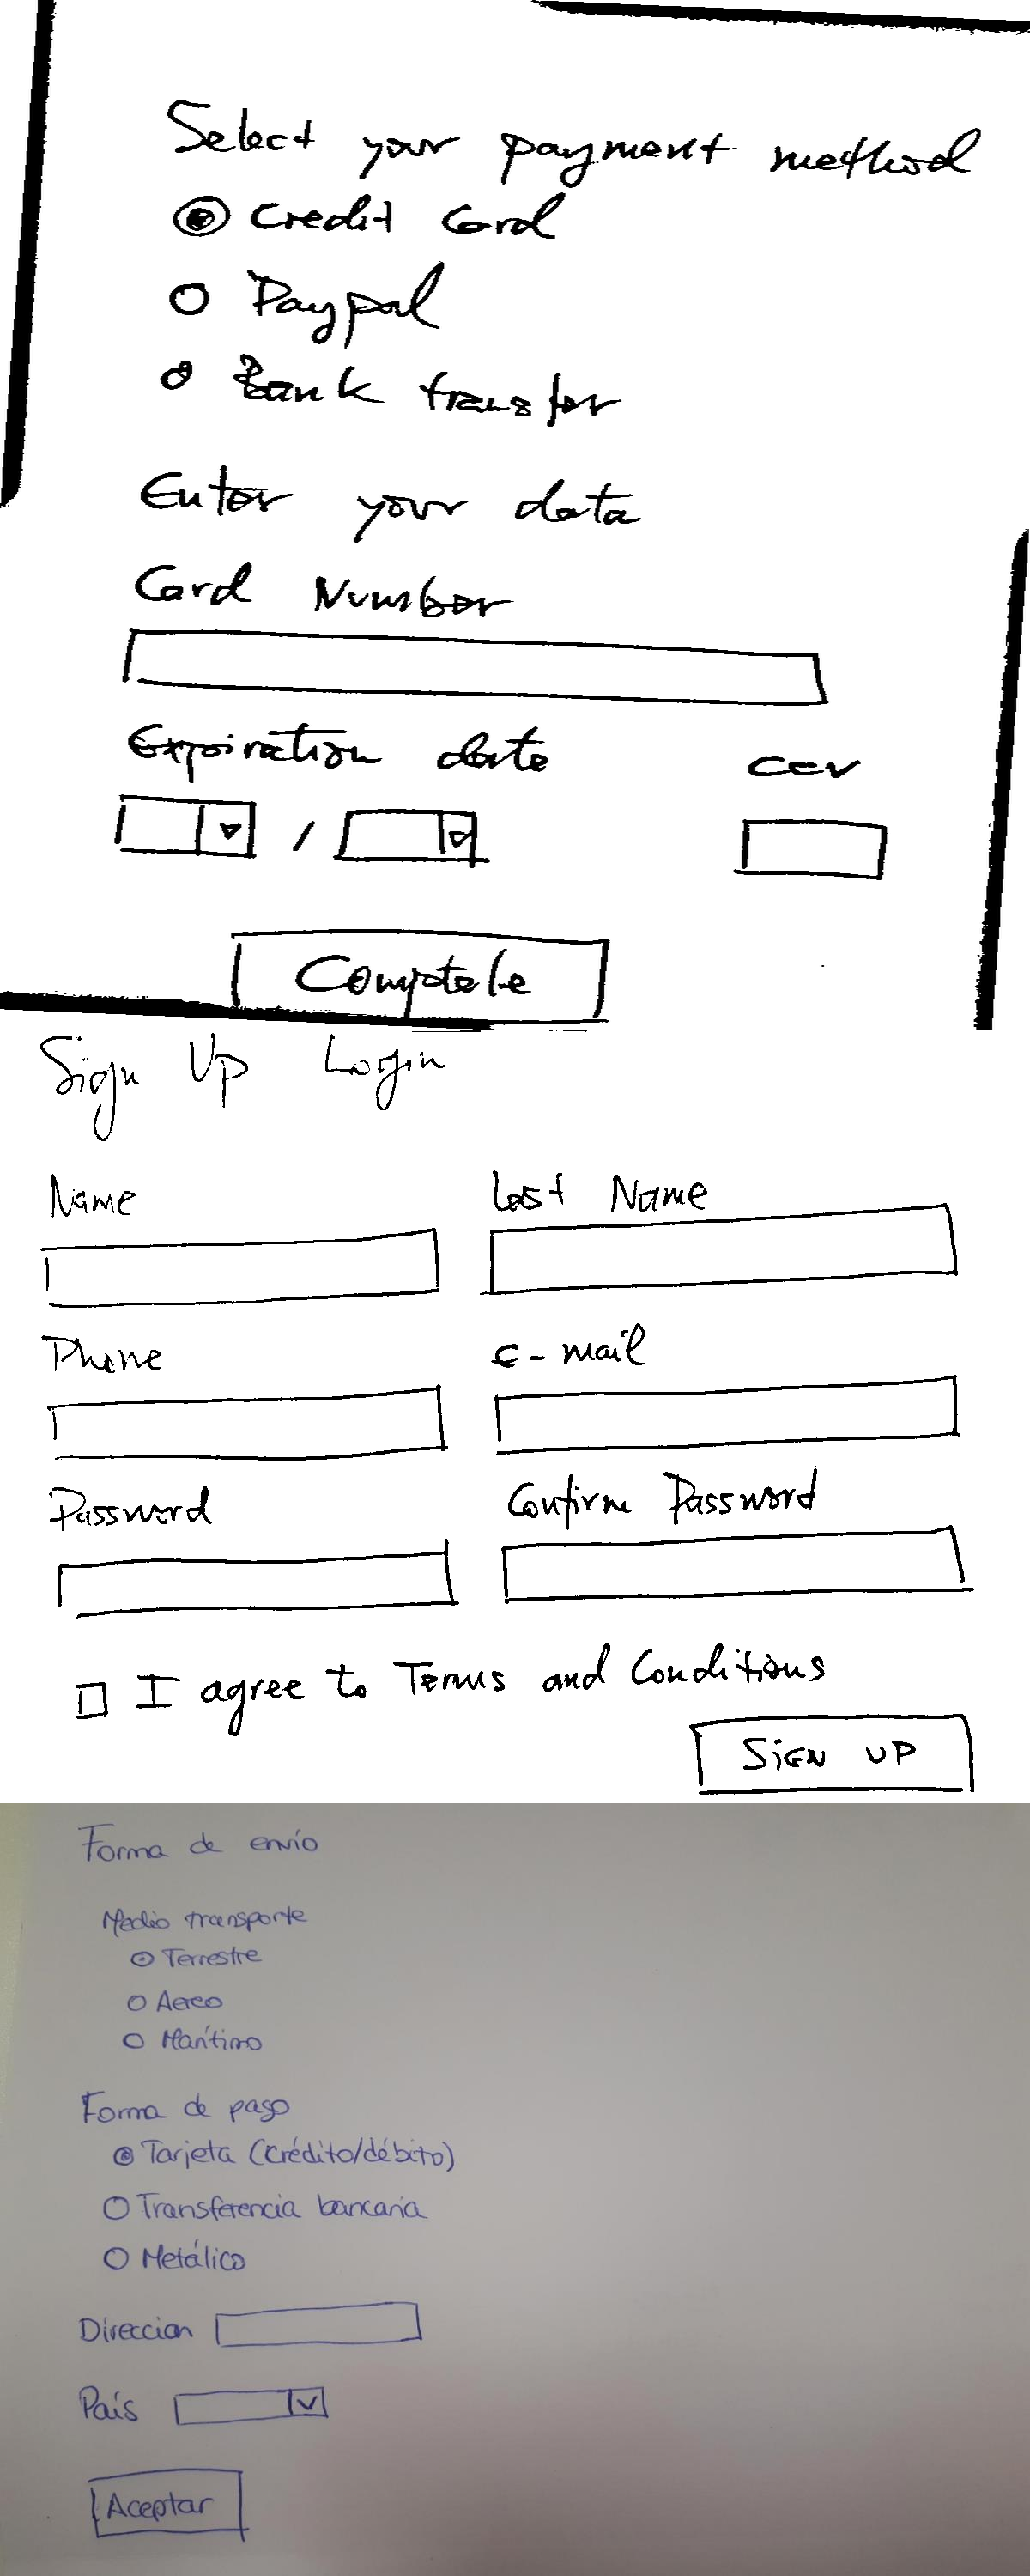 Select your payment method
Credit Card
Paypal
Bank transfer
Enter your data
Card Number
Expiration date CCV
/
Complete
Sign Up Login
Name Last Name
Phone e-mail
Password Confirm Password
I agree to Terms and Conditions
SIGN UP
Forma de envío
Medio transporte
Terrestre
Aereo
Marítimo
Forma de pago
Tarjeta (crédito/débito)
Transferencia bancaria
Metálico
Direccion
País
Aceptar